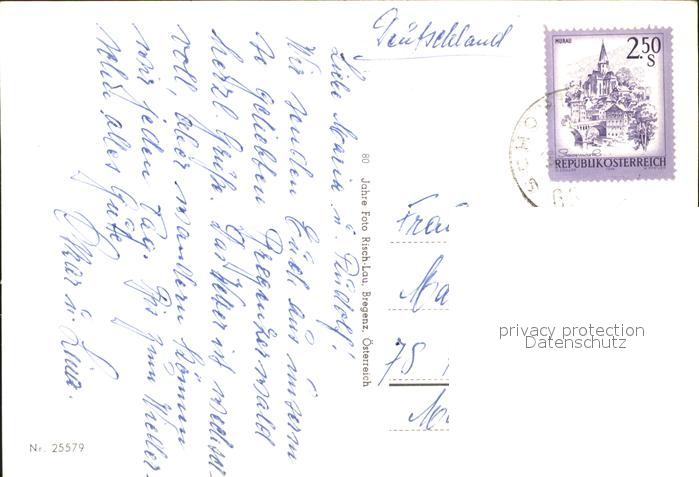 Deutschland
MURAU
2.50
S
REPUBLIK ÖSTERREICH
SCHO
Liebe Maria u. Rudolf!
Wir senden Euch aus unserm
so geliebten Bregenzerwald
herzl. Grüße. Das Wetter ist wechsel-
voll, aber wandern können
wir jeden Tag. Bis zum Wieder-
sehn alles Gute
Othmar u. Lina.
80 Jahre Foto Risch-Lau, Bregenz, Österreich
Frau
Ma
75
Nr. 25579
privacy protection
Datenschutz